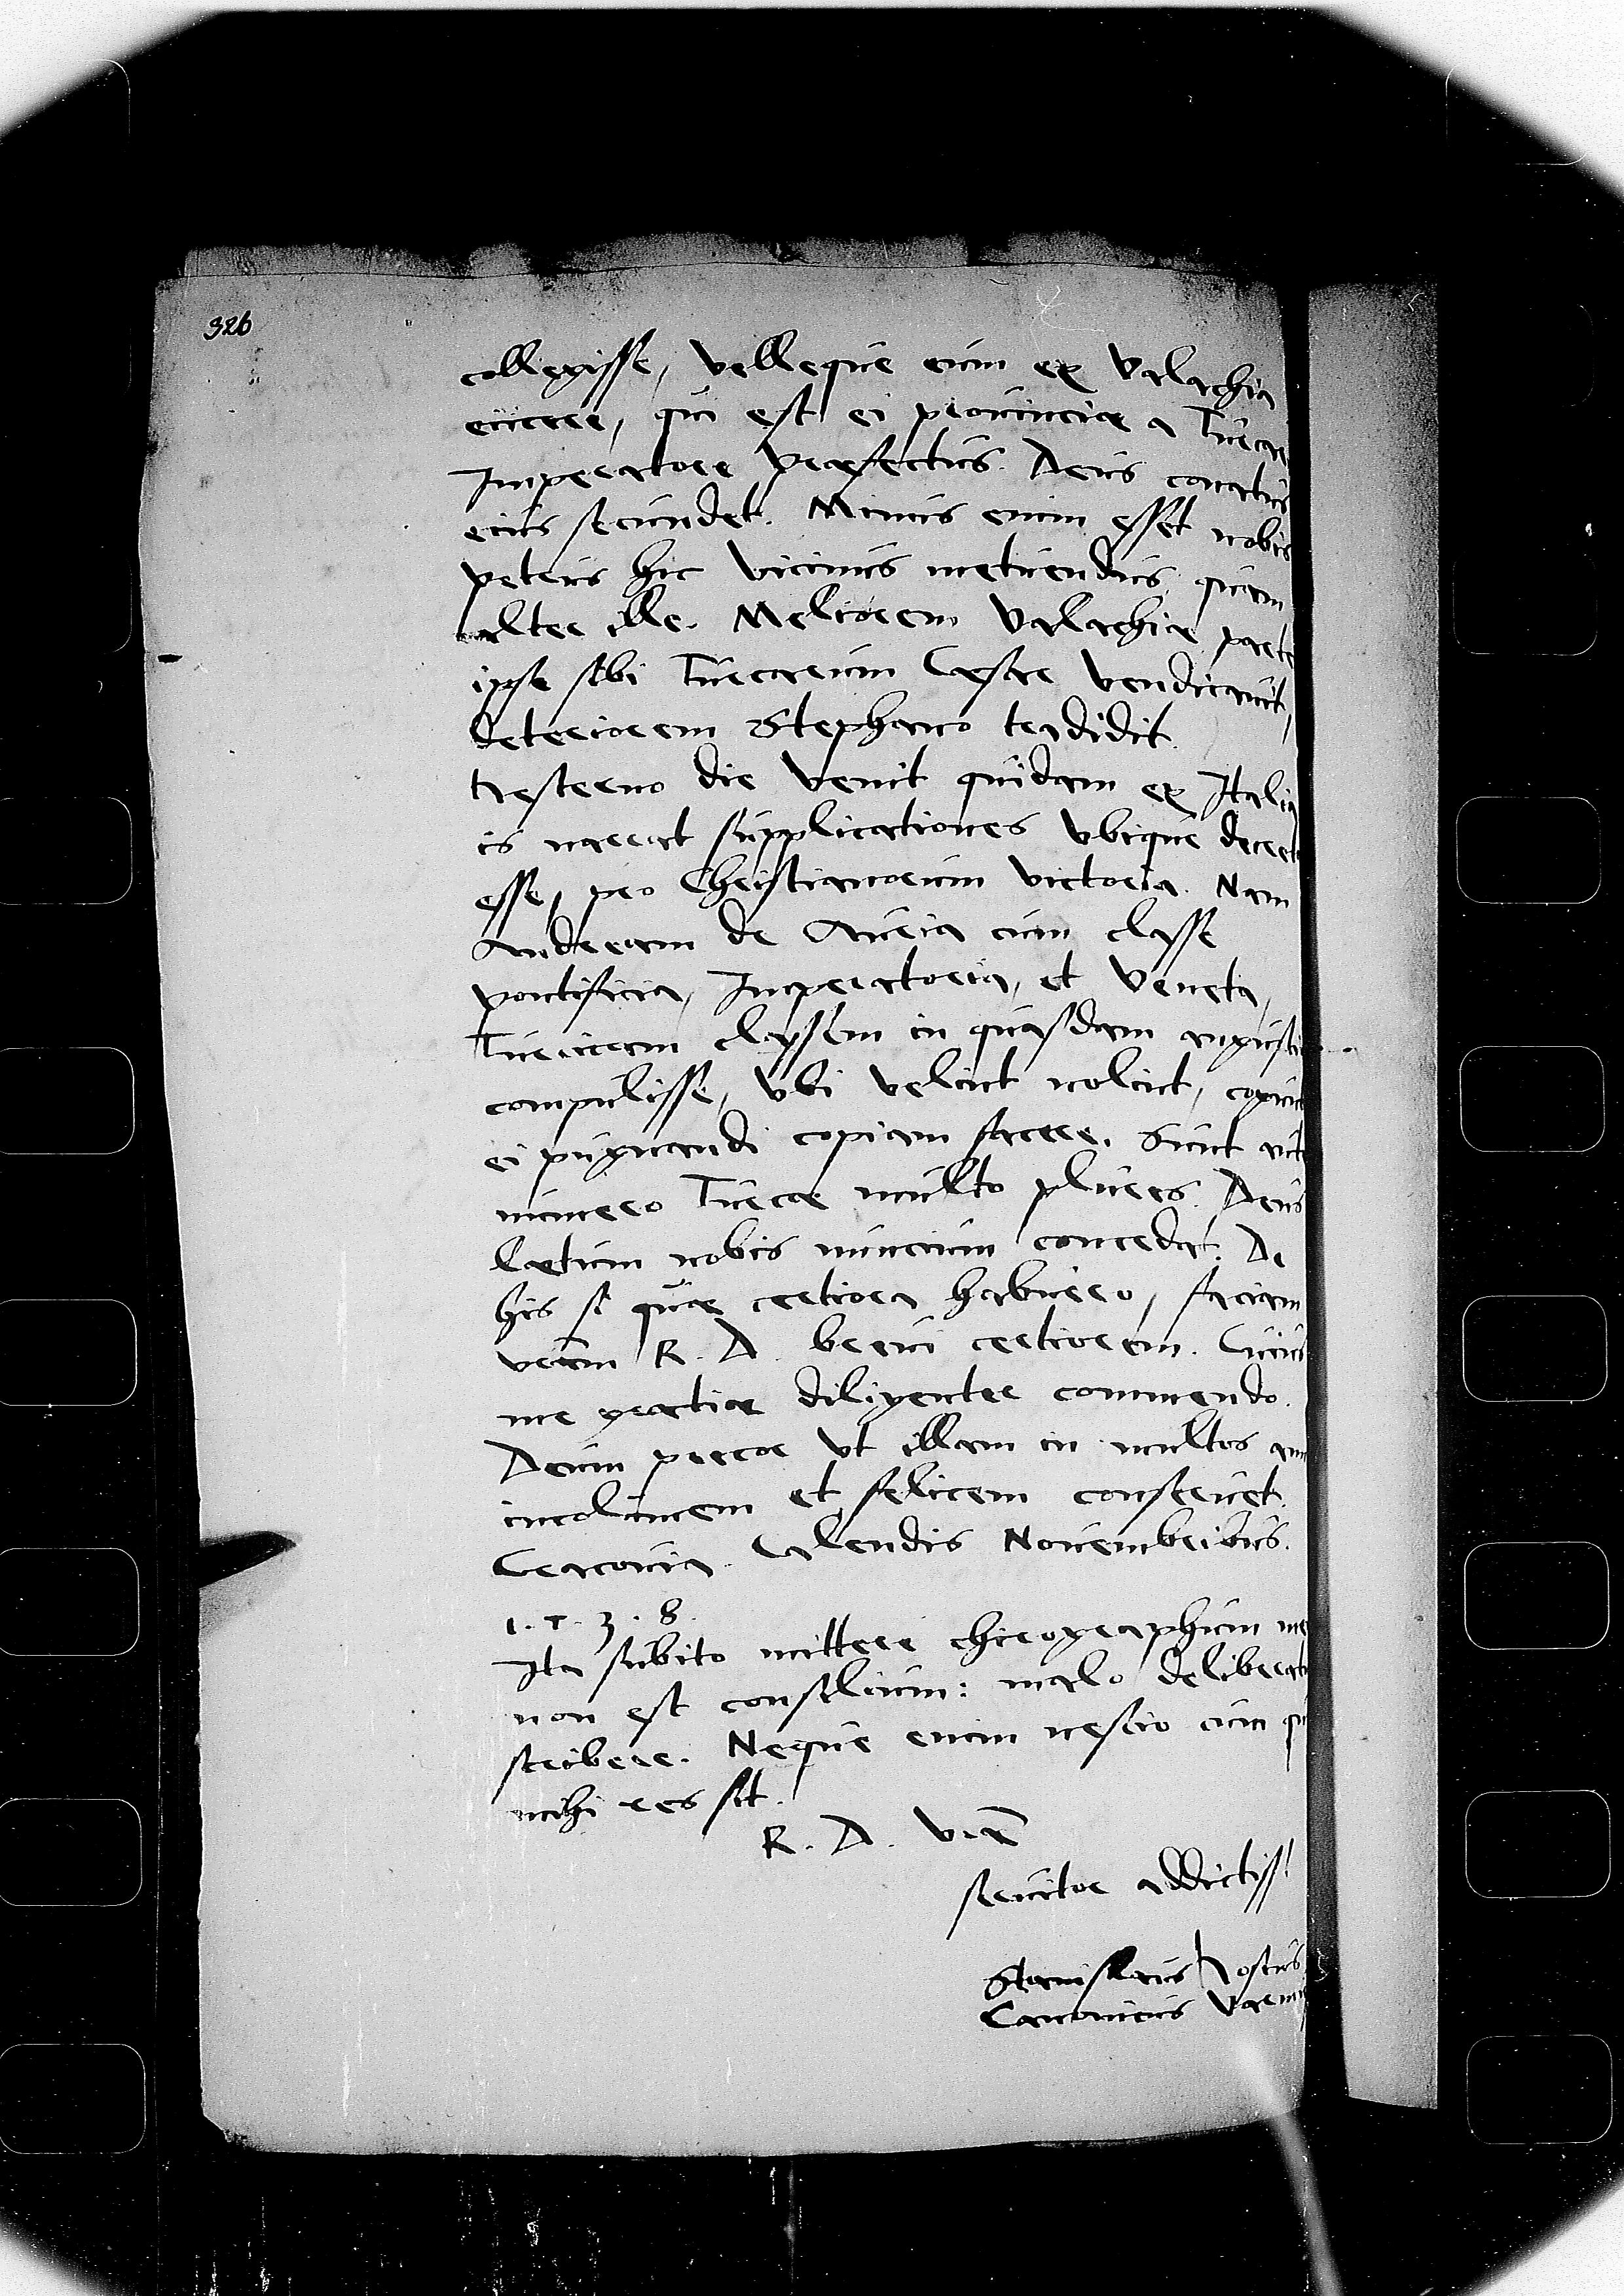 326
collegisse, velleque eum ex Valachia
eiicere, qui est ei prouinciae a Turcar
Imperatore praefectus. Deus conatus
eius secundet. Minus enim esset nobis
Petrus hic vicinus metuendus, quam
alter ille. Meliorem Valachiae parte
ipse sibi Turcarum Caesar vendicauit,
deteriorem Stephano tradidit.
Hesterno die venit quidam ex Italia
is narrat supplicationes vbique decert
esse, pro Christianorum victoria. Nam
Andream de Auria cum classe
pontificia, Imperatoria, et Veneta,
Turcicam classem in quasdam angusti
compulisse, vbi velint nolint, cogunt
ei pugnandi copiam facere. Sunt aut
numero Turcae multo plures. Deus
laetum nobis nuncium concedat. De
his si quae certiora habuero, faciam
vram R. D. breui certiorem. Cuius
me gratiae diligenter commendo.
Deum precor vt illam in multos ann
incolumem et felicem conseruet.
Cracouia. Calendis Nouembribus.
1. 5. 3. 8.
Ita subito mittere chirographum me
non est consilium: malo deliberat
scribere. Neque enim nescio cum qu
mihi res sit.
R. D. v. rae
seruitor addictiss
Stanislaus Hosius
Canonicus Varmi